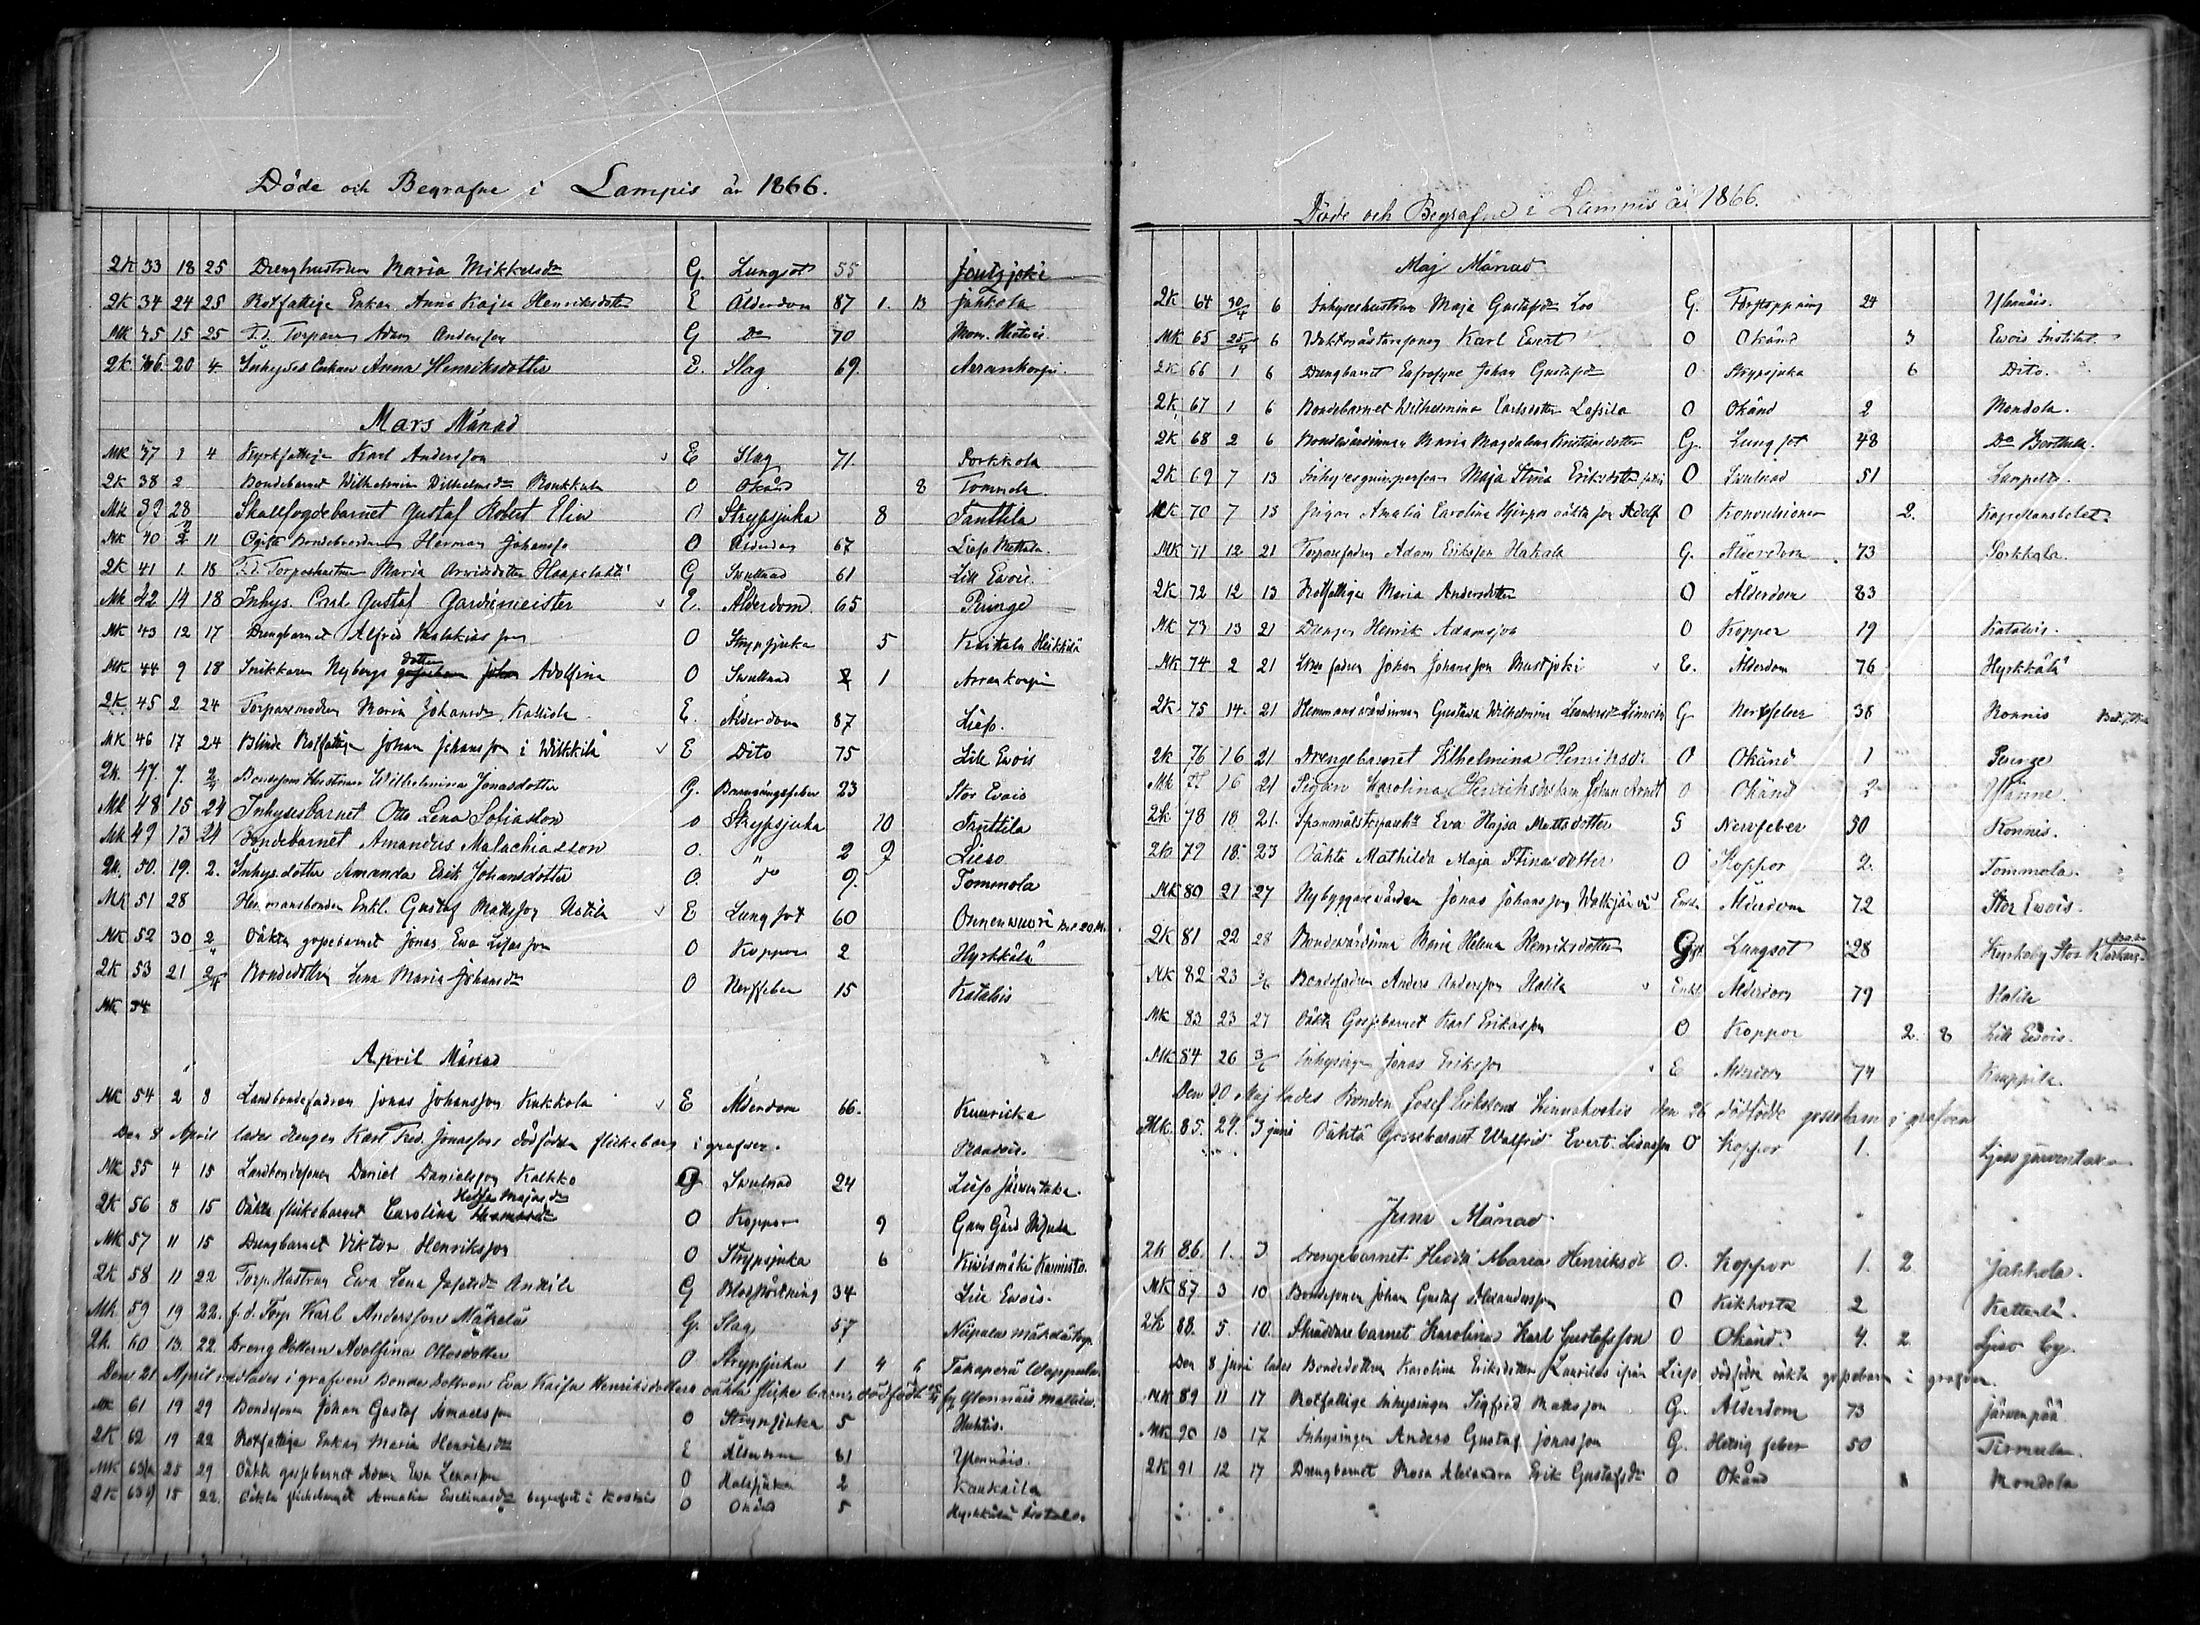 Döde och Begrafne i Lampis år 1866.
2K 33 18 25 Drenghustrun Maria Mikkelsdr G. Lungsot 55 Joutsjoki
2K 34 24 25 Rotfattige Enkan Anna Kajsa Henriksdotter E Ålderdom 87 1. 13 Jahkola
MK 35 15 25 F.d. Torparen Adam Andersson G Do 70
2K 36. 20 4 Inhyses Enkan Anna Henriksdotter E. Slag 69. Arrankorpi
Mars Månad
MK 37 1 4 Kyrkfattige Karl Andersson E Slag 71. Porkkola
2K 38 2 Bondebarnet Wilhelmina Wilhelmsdr O Okänd 8 Tommola
MK 39 28 Skallfogdebarnet Gustaf Robert Elin O Strypsjuka 8 Tanttila
MK 40 2 11 Ogifte Bondebrodren Herman Johansson O Ålderdom 67 Lieso
2K 41 1. 18 F.d. Torpashustrun Maria Arvidsdotter Haapalahti G Swullnad 61 Lill Ewois
MK 42 14 18 Inhys. Carl Gustaf Gardemeister E. Ålderdom 65 Piringe
MK 43 12 17 Drengbarnet Alfred Malakias son O Strypsjuka 5 Kaitala Heikkilä
MK 44 9 18 Snikkaren Nybergs dotter Adolfina O Swullnad 1 Arrankorpi
2K 45 2 24 Torparemodren Maria Johansdr E. Ålderdom 87 Lieso.
MK 46 17 24 Blinde Rotfattige Johan Johansson i Wilkkilä E Dito 75 Lill Ewois
2K. 47. 7. 2/4 Bondesons Hustrun Wilhelmina Jonasdotter G. 23 Stor Evois
MK 48 15 24 Inhysesbarnet Otto Lena Sofiasson o Strypsjuka 10 Tanttila
MK 49 13 24 Bondebarnet Amandus Malachiasson O. " 2 9 Lieso
2K. 50. 19. 2. Inhys.dotter Amanda Erik Johansdotter O. do 9. Tommola
MK 51 28 Hemmansbonden Enkl. Gustaf Mattsson E Lungsot 60 Onnenwuori
MK 52 30 2/4 Oäkta gossebarnet Jonas Ewa Lisasson O Koppor 2 Hyrkkälä
2K 53 21 2/4 Bondedottren Lena Maria Johansdr O Nerffeber 15 Kataluis
MK 54
April Månad
MK 54 2 8 Landbondefadren Jonas Johansson Kukkola E Ålderdom 66. Kuurikka
Den 8 April lades drengen Karl Fred. Jonassons dödfödda flickebarn i grafven.
MK 55 4 15 Landbondesonen Daniel Danielsson Kalkko G Swulnad 24 Lieso Järwentaka.
2K 56 8 15 Oäkta flickebarnet Carolina Hedda Majasdr O Koppor 9 Gam Gård
MK 57 11 15 Drengbarnet Viktor Henriksson O Strypsjuka 6 Kiwismäki
2K 58 11 22 Torp. Hustrun Ewa Lena Josefsdr Anttila G Blodstörtning 34 Lill Ewois.
MK 59 19 22. f.d. Torp. Karl Andersson Mäkelä G. Slag 57
2K. 60 13. 22 Dreng Dottern Adolfina Ottosdotter O Strypsjuka 1 4 6
Den 21 April nedlades i grafven Bonde Dottren Eva Kaisa Henriksdotters oäkta flicke barn, dödfödt
MK 61 19 29 Bondesonen Johan Gustaf Ismaelsson O Strypsjuka 5
2K 62 19 22 Rotfattige Enkan Maria Henriksdr E Ålderdom 81 Ylennäis.
MK 63a 25 29 Oäkta gossebarnet Adam Ewa Lenasson O Halssjuka 2 Kaukaila
2K 63b 15 22. Oäkta flickebarnet Amalia begrafvet i Koskis O Okänd 5
Döde och Begrafne i Lampis år 1866.
Maj Månad
2K 64 30/4 6 Inhyseshustrun Maja Gustafsdr Loo G. Förstoppning 24
MK 65 25/4 6 Waktmästaresonen Karl Ewert O Okänd 3 Ewois Institut.
2K 66 1 6 Drengbarnet Eufrosyne Johan Gustafsdr O Strypsjuka 6 Dito.
2K 67 1 6 Bondebarnet Wilhelmina Carlsdotter Lassila O Okänd 2 Mondola.
2K 68 2 6 Bondewärdinnan Maria Magdalena Kristiansdotter G. Lungsot 48 Do
2K 69 7 13 Inhysesqwinspersonen Maja Stina Eriksdotter O Swulnad 51
MK 70 7 13 Pigan Amalia Carolina oäkta son Adolf O Konvulsioner 2. Kapellansbolet
MK 71 12 21 Torparefadren Adam Eriksson Hakala G. Ålderdom 73 Porkkola
2K 72 12 13 Rotfattige Maria Andersdotter O Ålderdom 83
MK 73 13 21 Drengen Henrik Adamsson O Koppor 19 Kataluis.
MK 74 2 21 fadren Johan Johansson Mustjoki E. Ålderdom 76 Hyrkkälä
2K 75 14. 21 Hemmanswärdinnan Gustava Wilhelmina Leandersdr G Nerffeber 38 Ronnis
2K 76 16 21 Drengebarnet Wilhelmina Henriksdr O Okänd 1 Piringe
MK 77 16 21 Pigan Karolina Henriksdrs barn Johan O Okänd 2
2K 78 18 21. Eva Kajsa Mattsdotter G Nervfeber 50 Ronnis.
2K 79 18 23 Oäkta Mathilda Maja Stinasdotter O Koppor 2. Tommola.
MK 80 21 27 Nybyggarewärden Jonas Johansson Walkjärwi Enkl. Ålderdom 72 Stor Ewois.
2K 81 22 28 Bondewärdinnan Maria Helena Henriksdotter Gft Lungsot 28 Kyrkoby Stor
MK 82 23 3/6 Bondefadren Anders Andersson Halila Enkl. Ålderdom 79 Halila
MK 83 23 27 Oäkta Gossebarnet Karl Erikasson O Koppor 2. 8 Lill Ewois.
MK 84 26 3/6 Inhysingen Jonas Eriksson E Ålderdom 74 Kauppila
Den 20 Maj lades Bonden Josef Erikssons den 26 dödfödde gossebarn i grafven
MK. 85. 29. 3 juni Oäkta Gossebarnet Walfrid Evert Lisasson O Koppor 1. Lieso järwentaka
Juni Månad
2K 86. 1. 3 Drengebarnet Hedda Maria Henriksdr O. Koppor 1. 2 Jahkola.
MK 87 3 10 Bondesonen Johan Gustaf Alexandersson O Kikhosta 2
2K 88. 5. 10. Skräddarebarnet Karolina Karl Gustafsson O Okänd. 4. 2 Lieso by.
Den 8 juni lades Bondedottren Karolina Eriksdotter Laurilas ifrån Lieso, dödfödde oäkta gossebarn i grafven.
MK 89 11 17 Rotfattige Inhysingen Sigfrid Mattsson G. Ålderdom 73 Järvenpää
MK 90 13 17 Inhysingen Anders Gustaf Jonasson G. Hetsig feber 50
2K 91 12 17 Drengbarnet Rosa Alexandra Erik Gustafsdr O Okänd Mondola